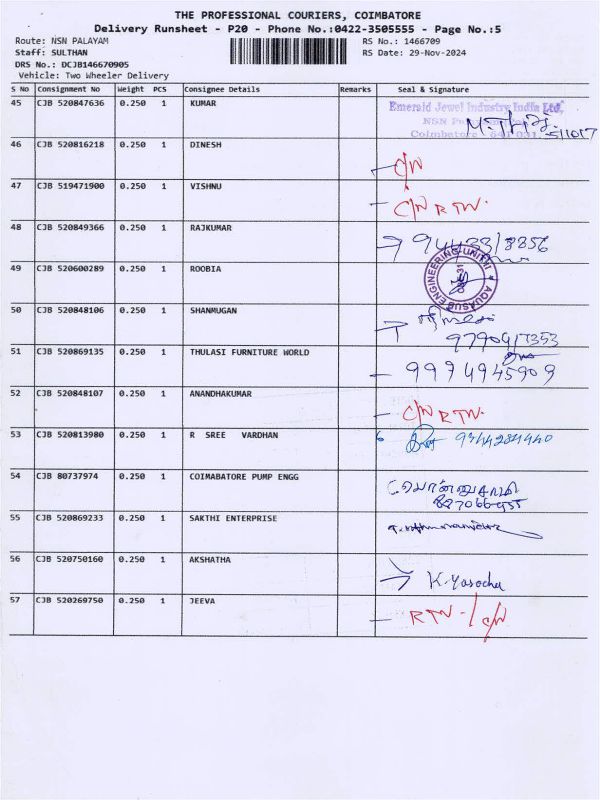 THE PROFESSIONAL COURIERS, COIMBATORE
Delivery Runsheet - P20 - Phone No.:0422-3505555 - Page No.:5
Route: NSN PALAYAM RS No.: 1466709
Staff: SULTHAN RS Date: 29-Nov-2024
DRS No.: DCJB146670905
Vehicle: Two Wheeler Delivery
S No Consignment No Weight PCS Consignee Details Remarks Seal & Signature
45 CJB 520847636 0.250 1 KUMAR Emerald Jewel Industry India Ltd,
NSN
Coimbatore - 641 031.
46 CJB 520816218 0.250 1 DINESH C/N
47 CJB 519471900 0.250 1 VISHNU C/N RTN.
48 CJB 520849366 0.250 1 RAJKUMAR 9443318856
49 CJB 520600289 0.250 1 ROOBIA AQUASUB ENGINEERING-UNIT
50 CJB 520848106 0.250 1 SHANMUGAN
9790417353
51 CJB 520869135 0.250 1 THULASI FURNITURE WORLD 9994945909
52 CJB 520848107 0.250 1 ANANDHAKUMAR C/N RTN.
53 CJB 520813980 0.250 1 R SREE VARDHAN 9344284440
54 CJB 80737974 0.250 1 COIMABATORE PUMP ENGG C.பொன்னுசாமி
55 CJB 520869233 0.250 1 SAKTHI ENTERPRISE
56 CJB 520750160 0.250 1 AKSHATHA K.Yasodha
57 CJB 520269750 0.250 1 JEEVA RTN - C/N